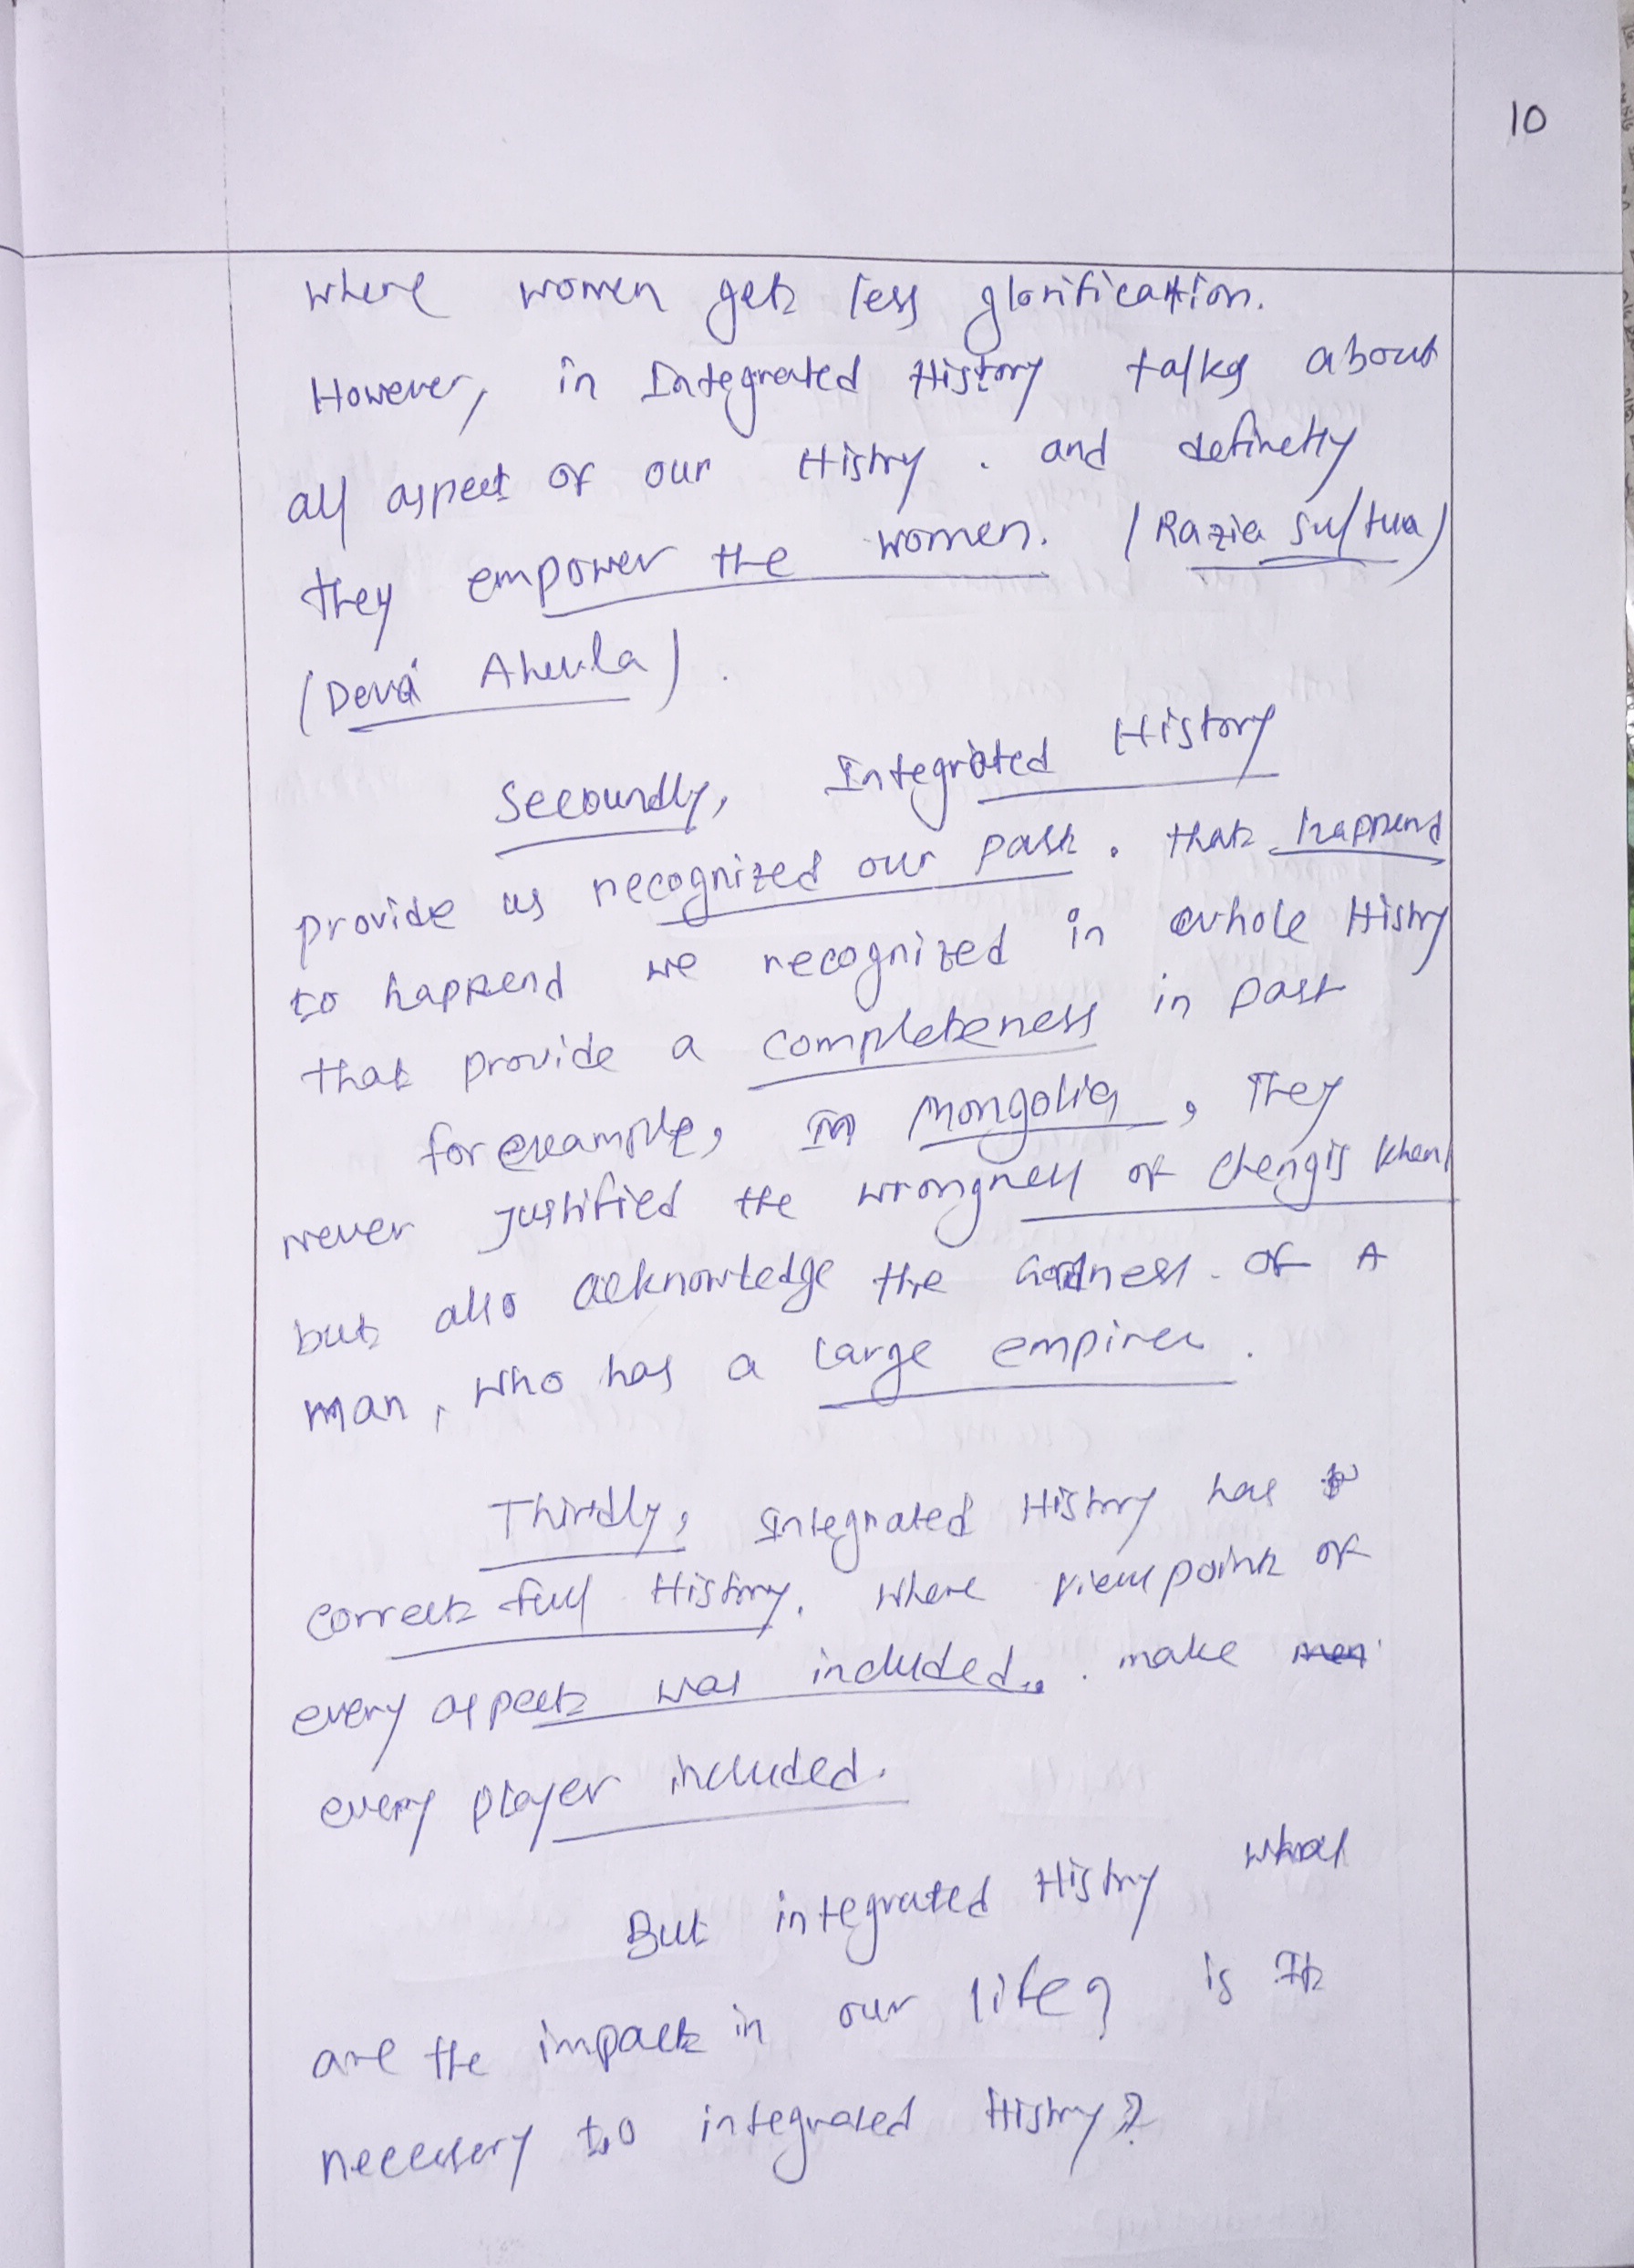 10
where women gets less glorification.
However, in Integrated History talks about
all aspect of our Histry. and definetly
they empower the women. (Razia Sultua)
(Deva Aheula).
Secoundly, Integrated History
provide us recognized our past. that happend
to happend we recognized in whole Histry
that provide a completeness in past
for example, in Mongolia, They
never justified the wrongness of Chengis Khan
but also acknowledge the of A
man, who has a large empires.
Thirdly, Integrated History has
correct full History. where viewpoint of
every aspect was included. make
every player included.
But integrated Histry what
are the impact in our life? is It
necessery to integrated Histry?